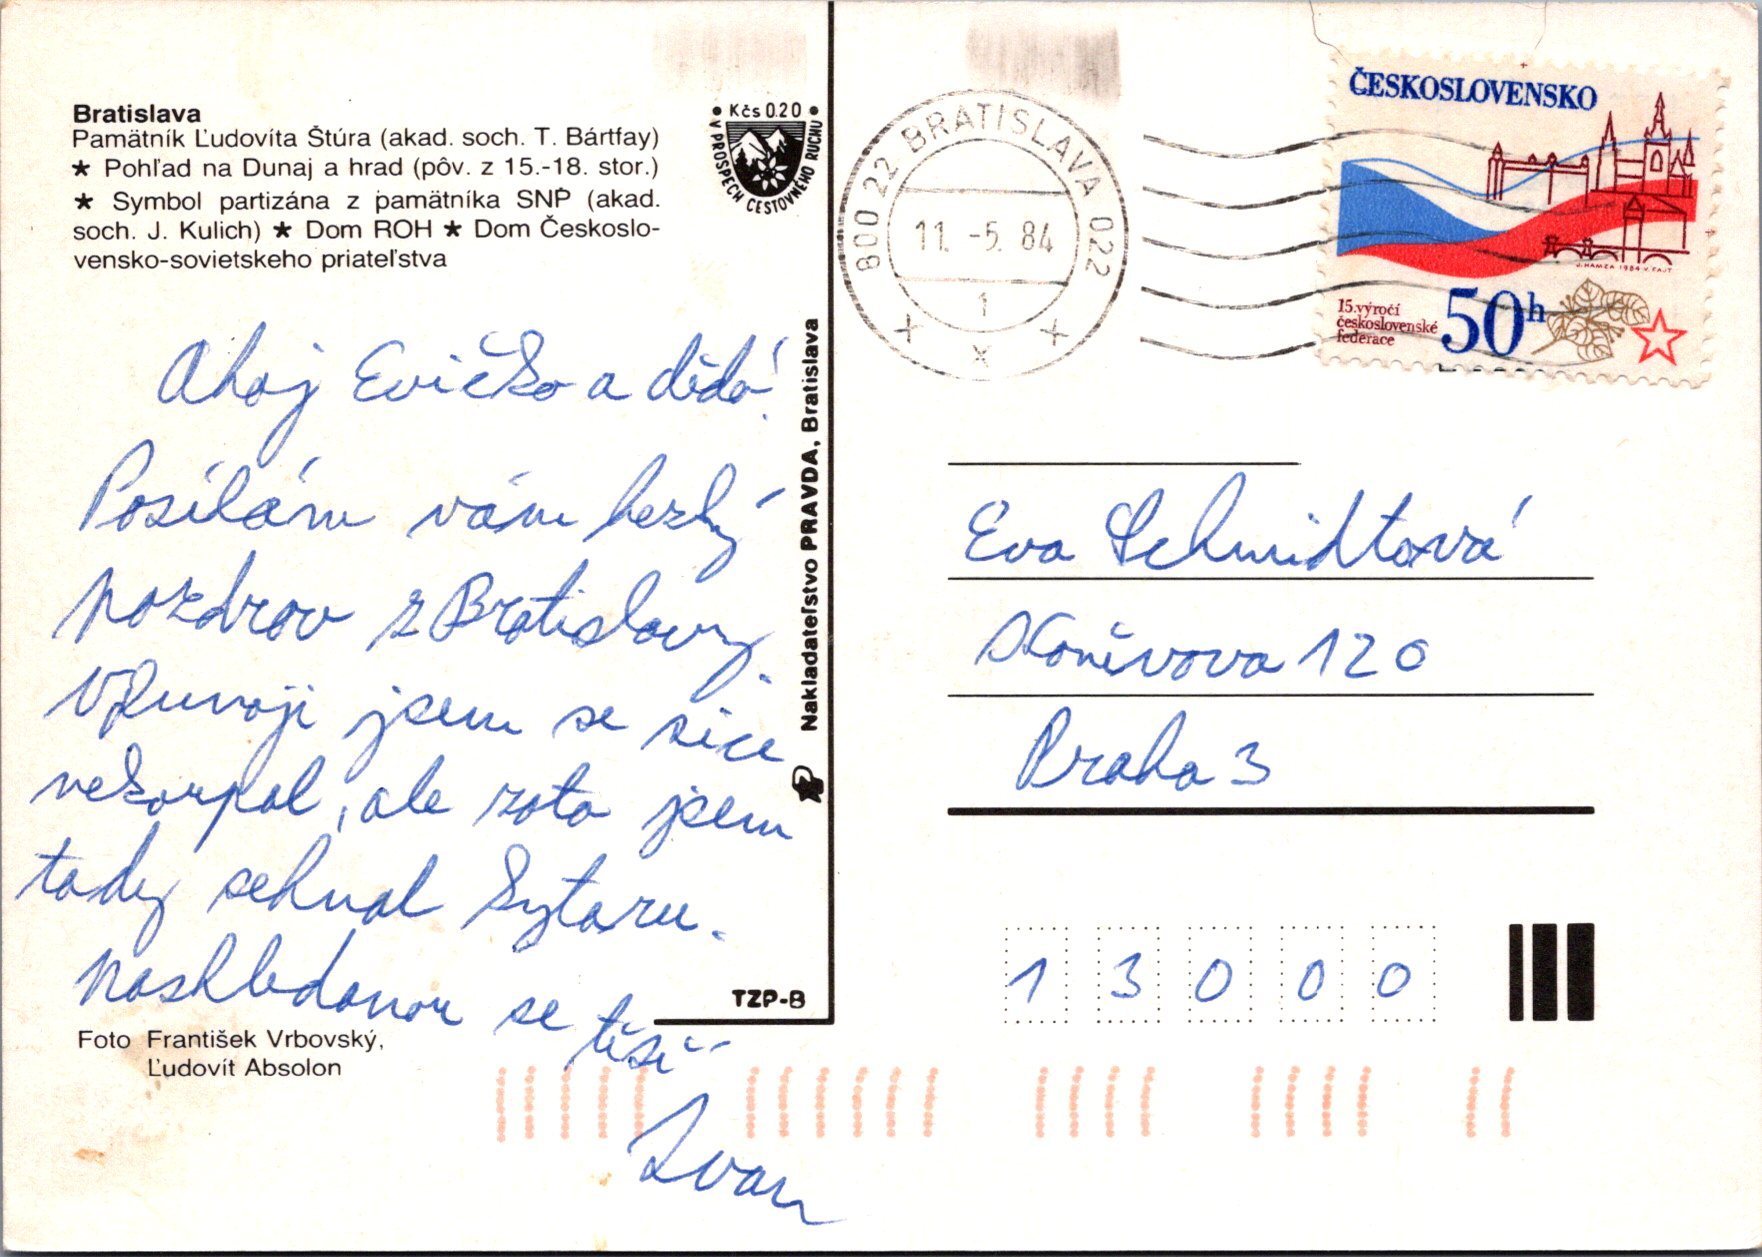 Bratislava
Pamätník Ľudovíta Štúra (akad. soch. T. Bártfay)
★ Pohľad na Dunaj a hrad (pôv. z 15.-18. stor.)
★ Symbol partizána z pamätníka SNP (akad.
soch. J. Kulich) ★ Dom ROH ★ Dom Českoslo-
vensko-sovietskeho priateľstva
• Kčs 0.20 •
V PROSPECH CESTOVNÉHO RUCHU
Ahoj Evičko a dědo!
Posílám vám hezký
pozdrav z Bratislavy.
V Dunaji jsem se sice
nekoupal, ale zato jsem
tady sehnal kytaru.
Nashledanou se
těší
Ivan
Foto František Vrbovský,
Ľudovít Absolon
TZP-8
Nakladateľstvo PRAVDA, Bratislava
800 22 BRATISLAVA 022
11. -5. 84
1
ČESKOSLOVENSKO
J. HAMZA 1984 V. FAJT
15. výročí
československé
federace
50h
Eva Schmidtová
Koněvova 120
Praha 3
1 3 0 0 0